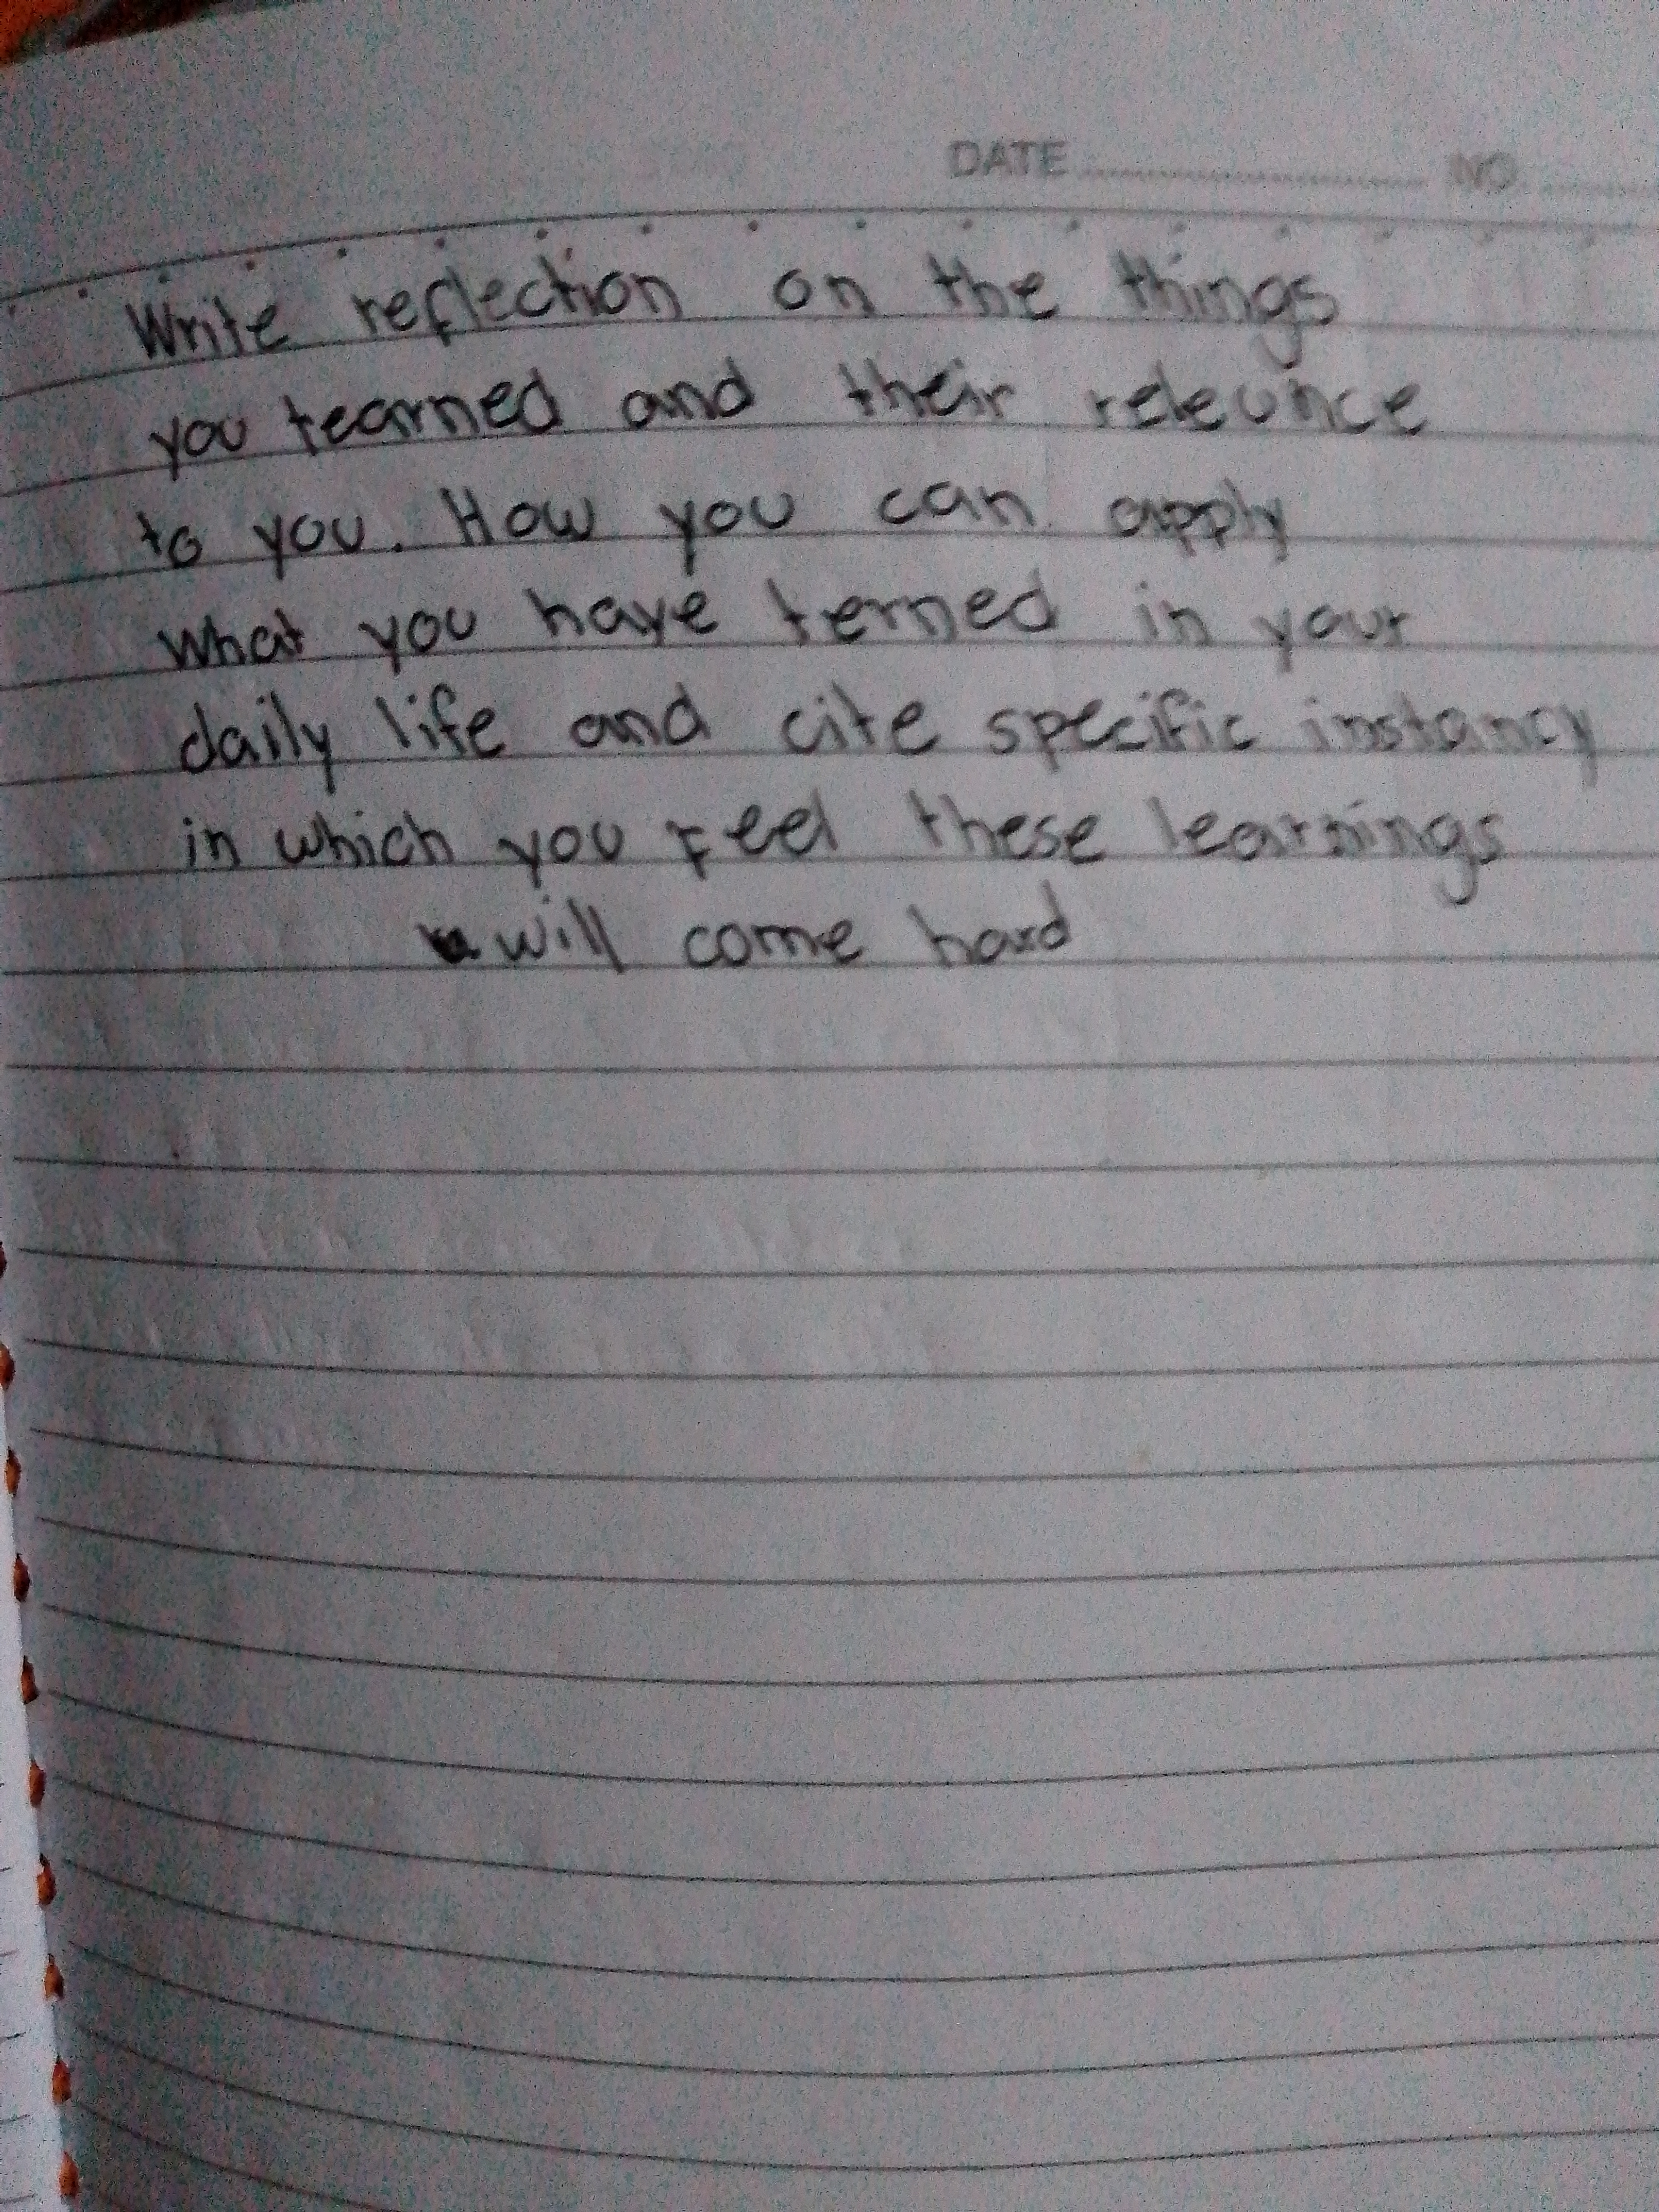 DATE NO
Write reflection on the things
you tearned and their relevunce
to you. How you can apply
What you have terned in your
daily life and cite specific instancy
in which you Feel these learnings
will come hard